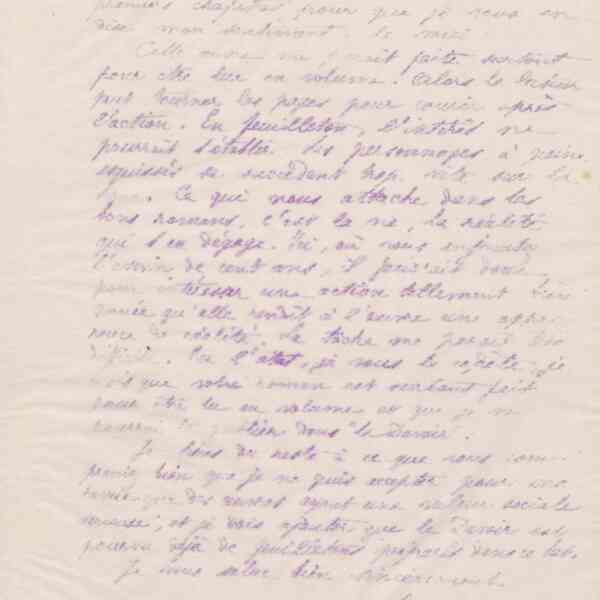 premiers chapitres pour que je vous en
dise mon sentiment le voici
Cette œuvre me paraît faite surtout
pour être lue en volume. Alors le lecteur
peut tourner les pages pour courir après
l'action. En feuilleton, l'intérêt ne
pourrait s'établir. Les personnages à peine
esquissés se succèdent trop vite sur la
Ce qui nous attache dans les
bons romans, c'est la vie, la réalité
qui s'en dégage. Ici, où vous enjambez
de cent ans, il faudrait donc
pour intéresser une action tellement
qu'elle rendît à l'œuvre une appa
rence de réalité. La tâche me paraît bien
difficile. En l'état, je vous le répète, je
crois que votre roman est surtout fait
pour être lu en volume et que je ne
pourrai le publier dans "le Devoir".
Je tiens du reste à ce que vous com-
preniez bien que je ne puis accepter pour me
que des œuvres ayant une valeur sociale
et je dois ajouter que le Devoir est
pourvu déjà de feuilletons préparés dans ce but.
Je vous salue bien sincèrement.